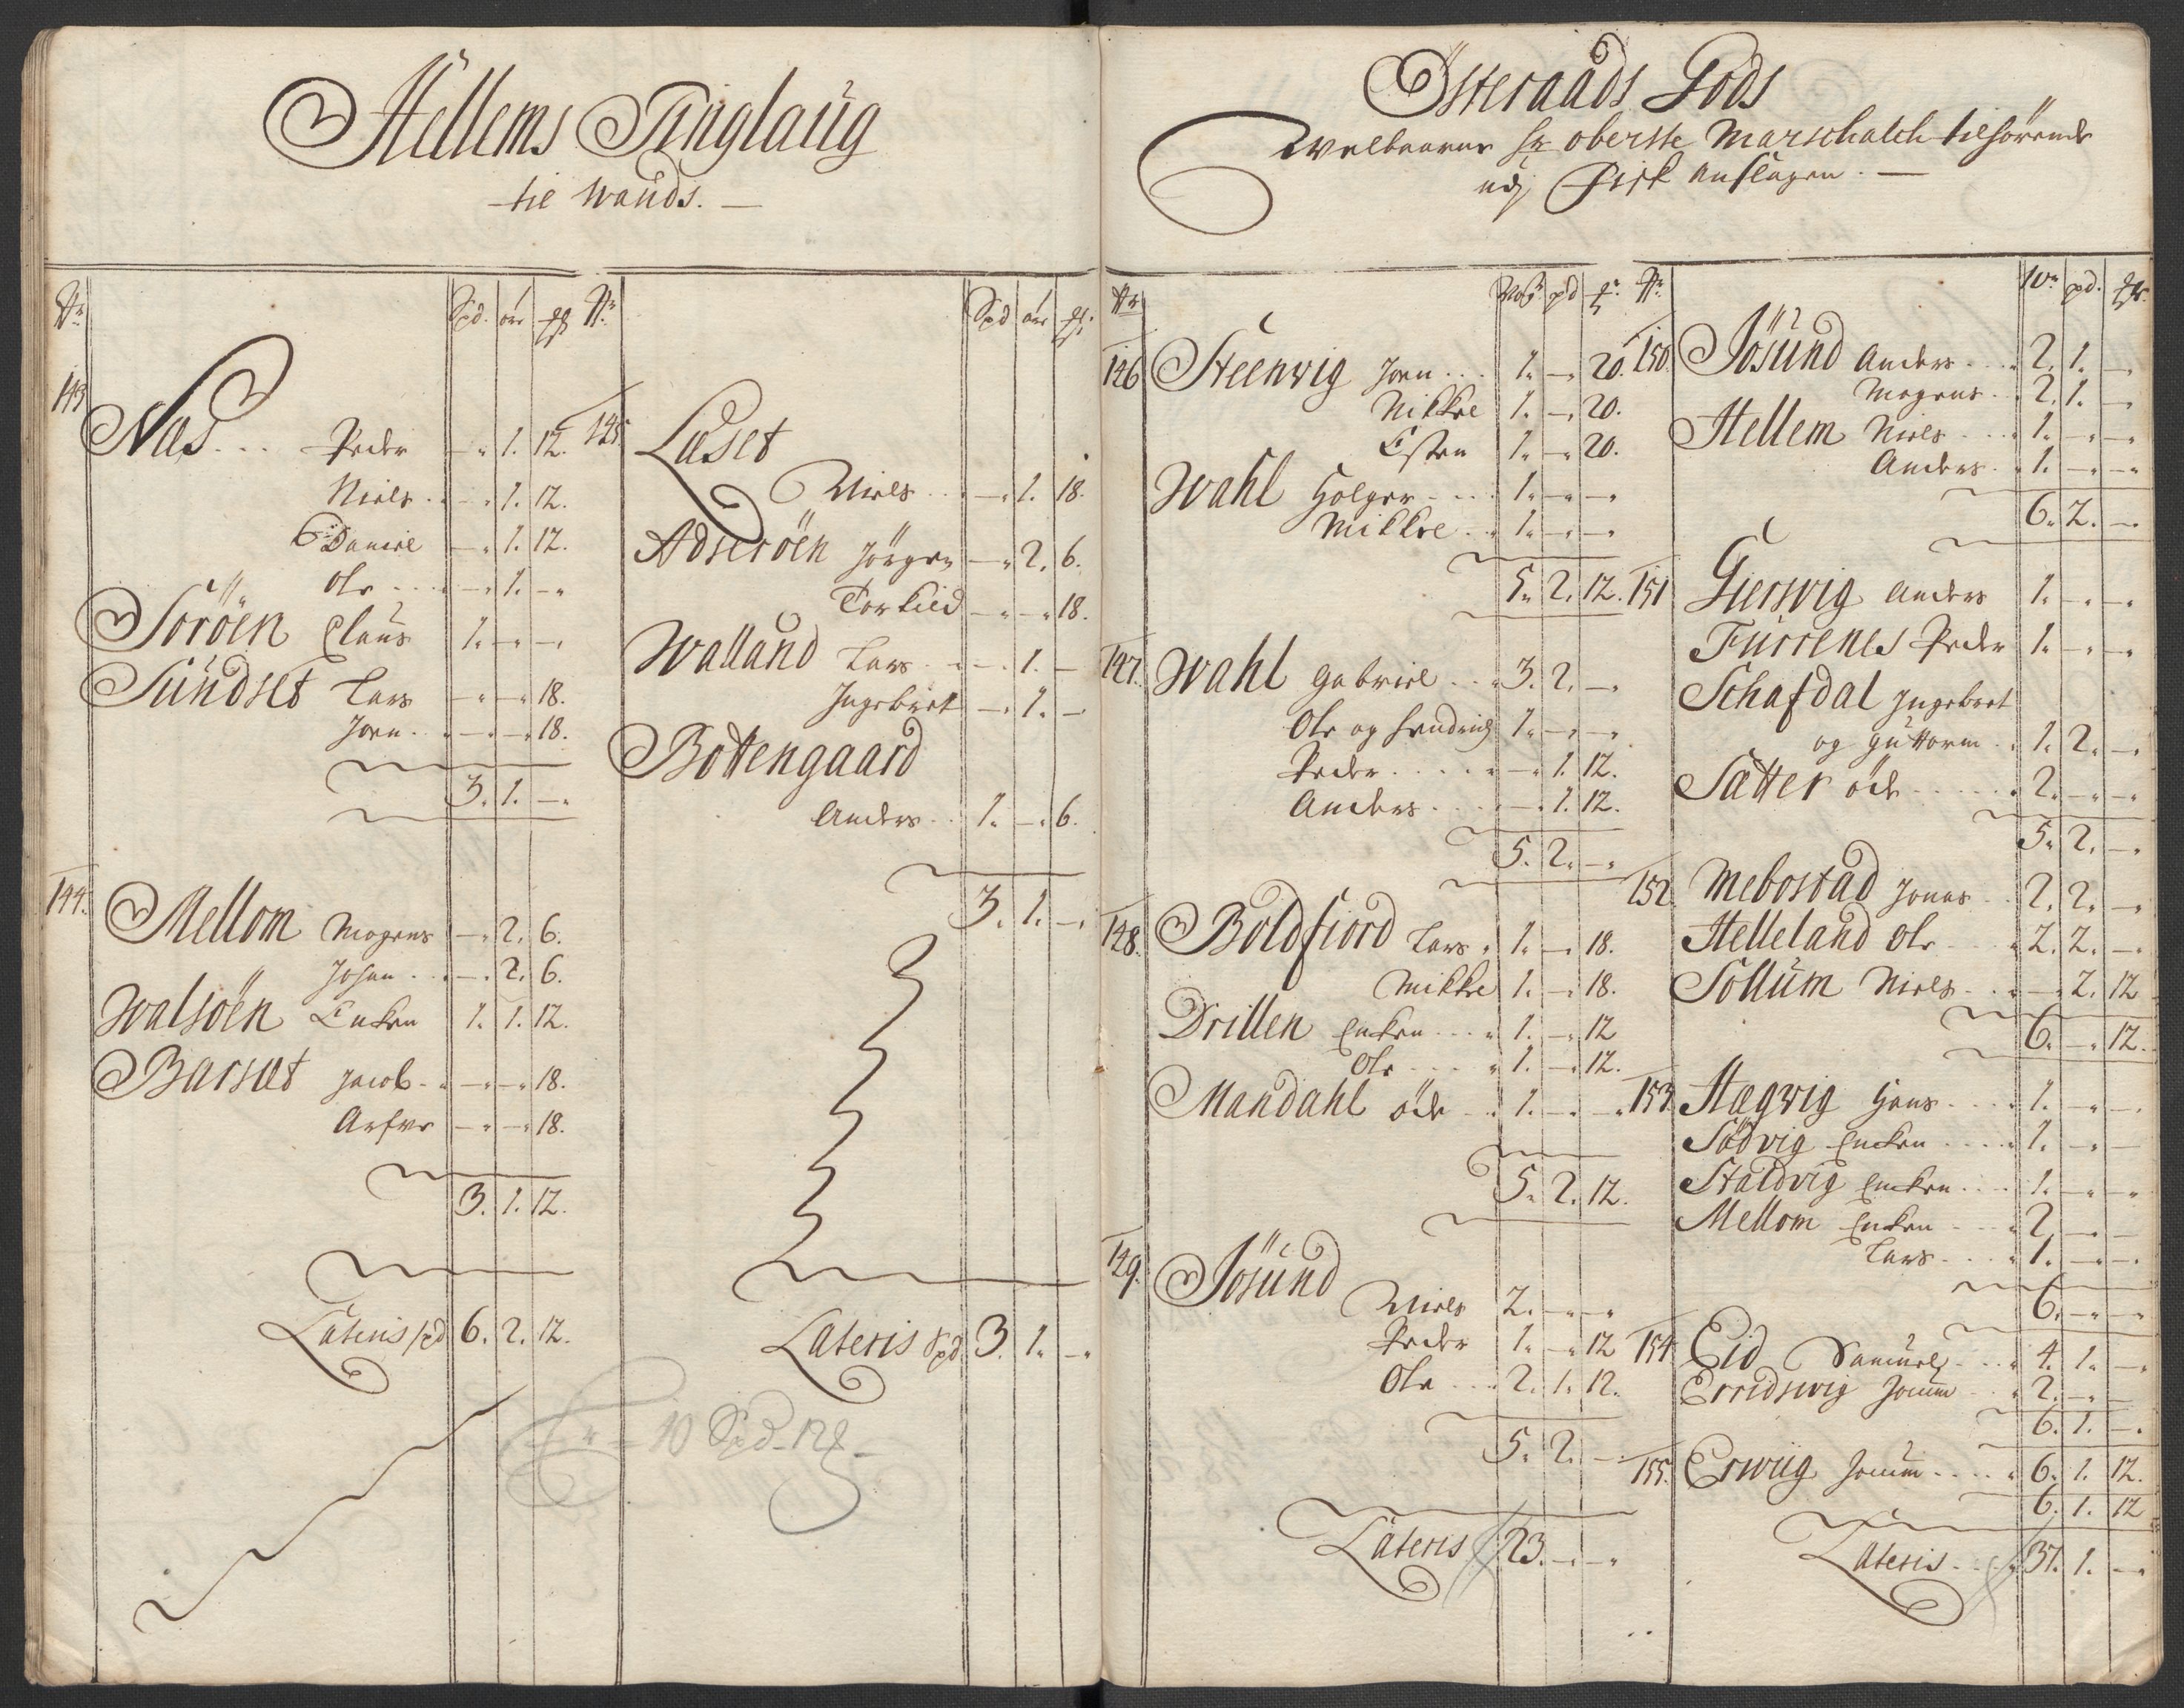 Hellems Tinglaug
til Wands.
Nr Spd. ør mk
143
Nas... Peder - 1. 12.
Niels - 1. 12.
Daniel - 1. 12.
Ole - 1. -
Söröen Claus 1. - -
Sundset Lars - - 18.
Joen - - 18.
3. 1. -
144. Mellom Mogens - 2. 6.
Johan - 2. 6.
Walsöen Encken 1. 1. 12.
Barsæt Jacob - - 18.
Arfve - - 18.
3. 1. 12.
Lateris spd 6. 2. 12.
Nr Spd ør
145. Læset
Niels - 1. 18.
Adseröen Jörgen - 2. 6.
Torkild - - 18.
Walland Lars - 1. -
Ingebret - 1. -
Bottengaard
Anders 1. - 6.
3. 1. -
Lateris Spd 3. 1. -
10 Spd
Østeraads Gods
Welbaarne Hr oberste Marschalch tilhørende
udj Fisk anslagen.
Nr pd
146 Steenvig Joen 1. - 20.
Mikkel 1. - 20.
Esten 1. - 20.
Wahl Holger 1. - -
Mikkel 1. - -
5. 2. 12.
147. Wahl Gabriel 3. 2. -
Ole og Hendrich 1. - -
Peder - 1. 12.
Anders - 1. 12.
5. 2. -
148. Boldfiord Lars 1. - 18.
Mikkel 1. - 18.
Drillen Encken 1. - 12
Ole 1. - 12.
Mandahl øde 1. - -
5. 2. 12.
149. Jösund
Niels 2. - -
Peder 1. - 12
Ole 2. 1. 12.
5. 2. -
Lateris 23. - -
Nr W. pd.
150. Jösund Anders 2. 1. -
Mogens 2. 1. -
Hellem Niels 1. - -
Anders 1. - -
6. 2. -
151 Giersvig Anders 1. - -
Furrenes Peder 1. - -
Schafdal Ingebret
og Guttorm 1. 2. -
Sætter øde 2. - -
5. 2. -
152. Mebostad Jonas 2. 2. -
Helleland Ole 2. 2. -
Sollum Niels - 2. 12
6. - 12.
153. Hægvig Hans 1. - -
Sødvig Encken 1. - -
Staldvig Encken 1. - -
Mellom Encken 2. - -
Lars 1. - -
6. - -
154. Eid Samuel 4. 1. -
Erridsvig Joenn 2. - -
6. 1. -
155. Erwiig Joenn 6. 1. 12.
6. 1. 12
Lateris 37. 1. -